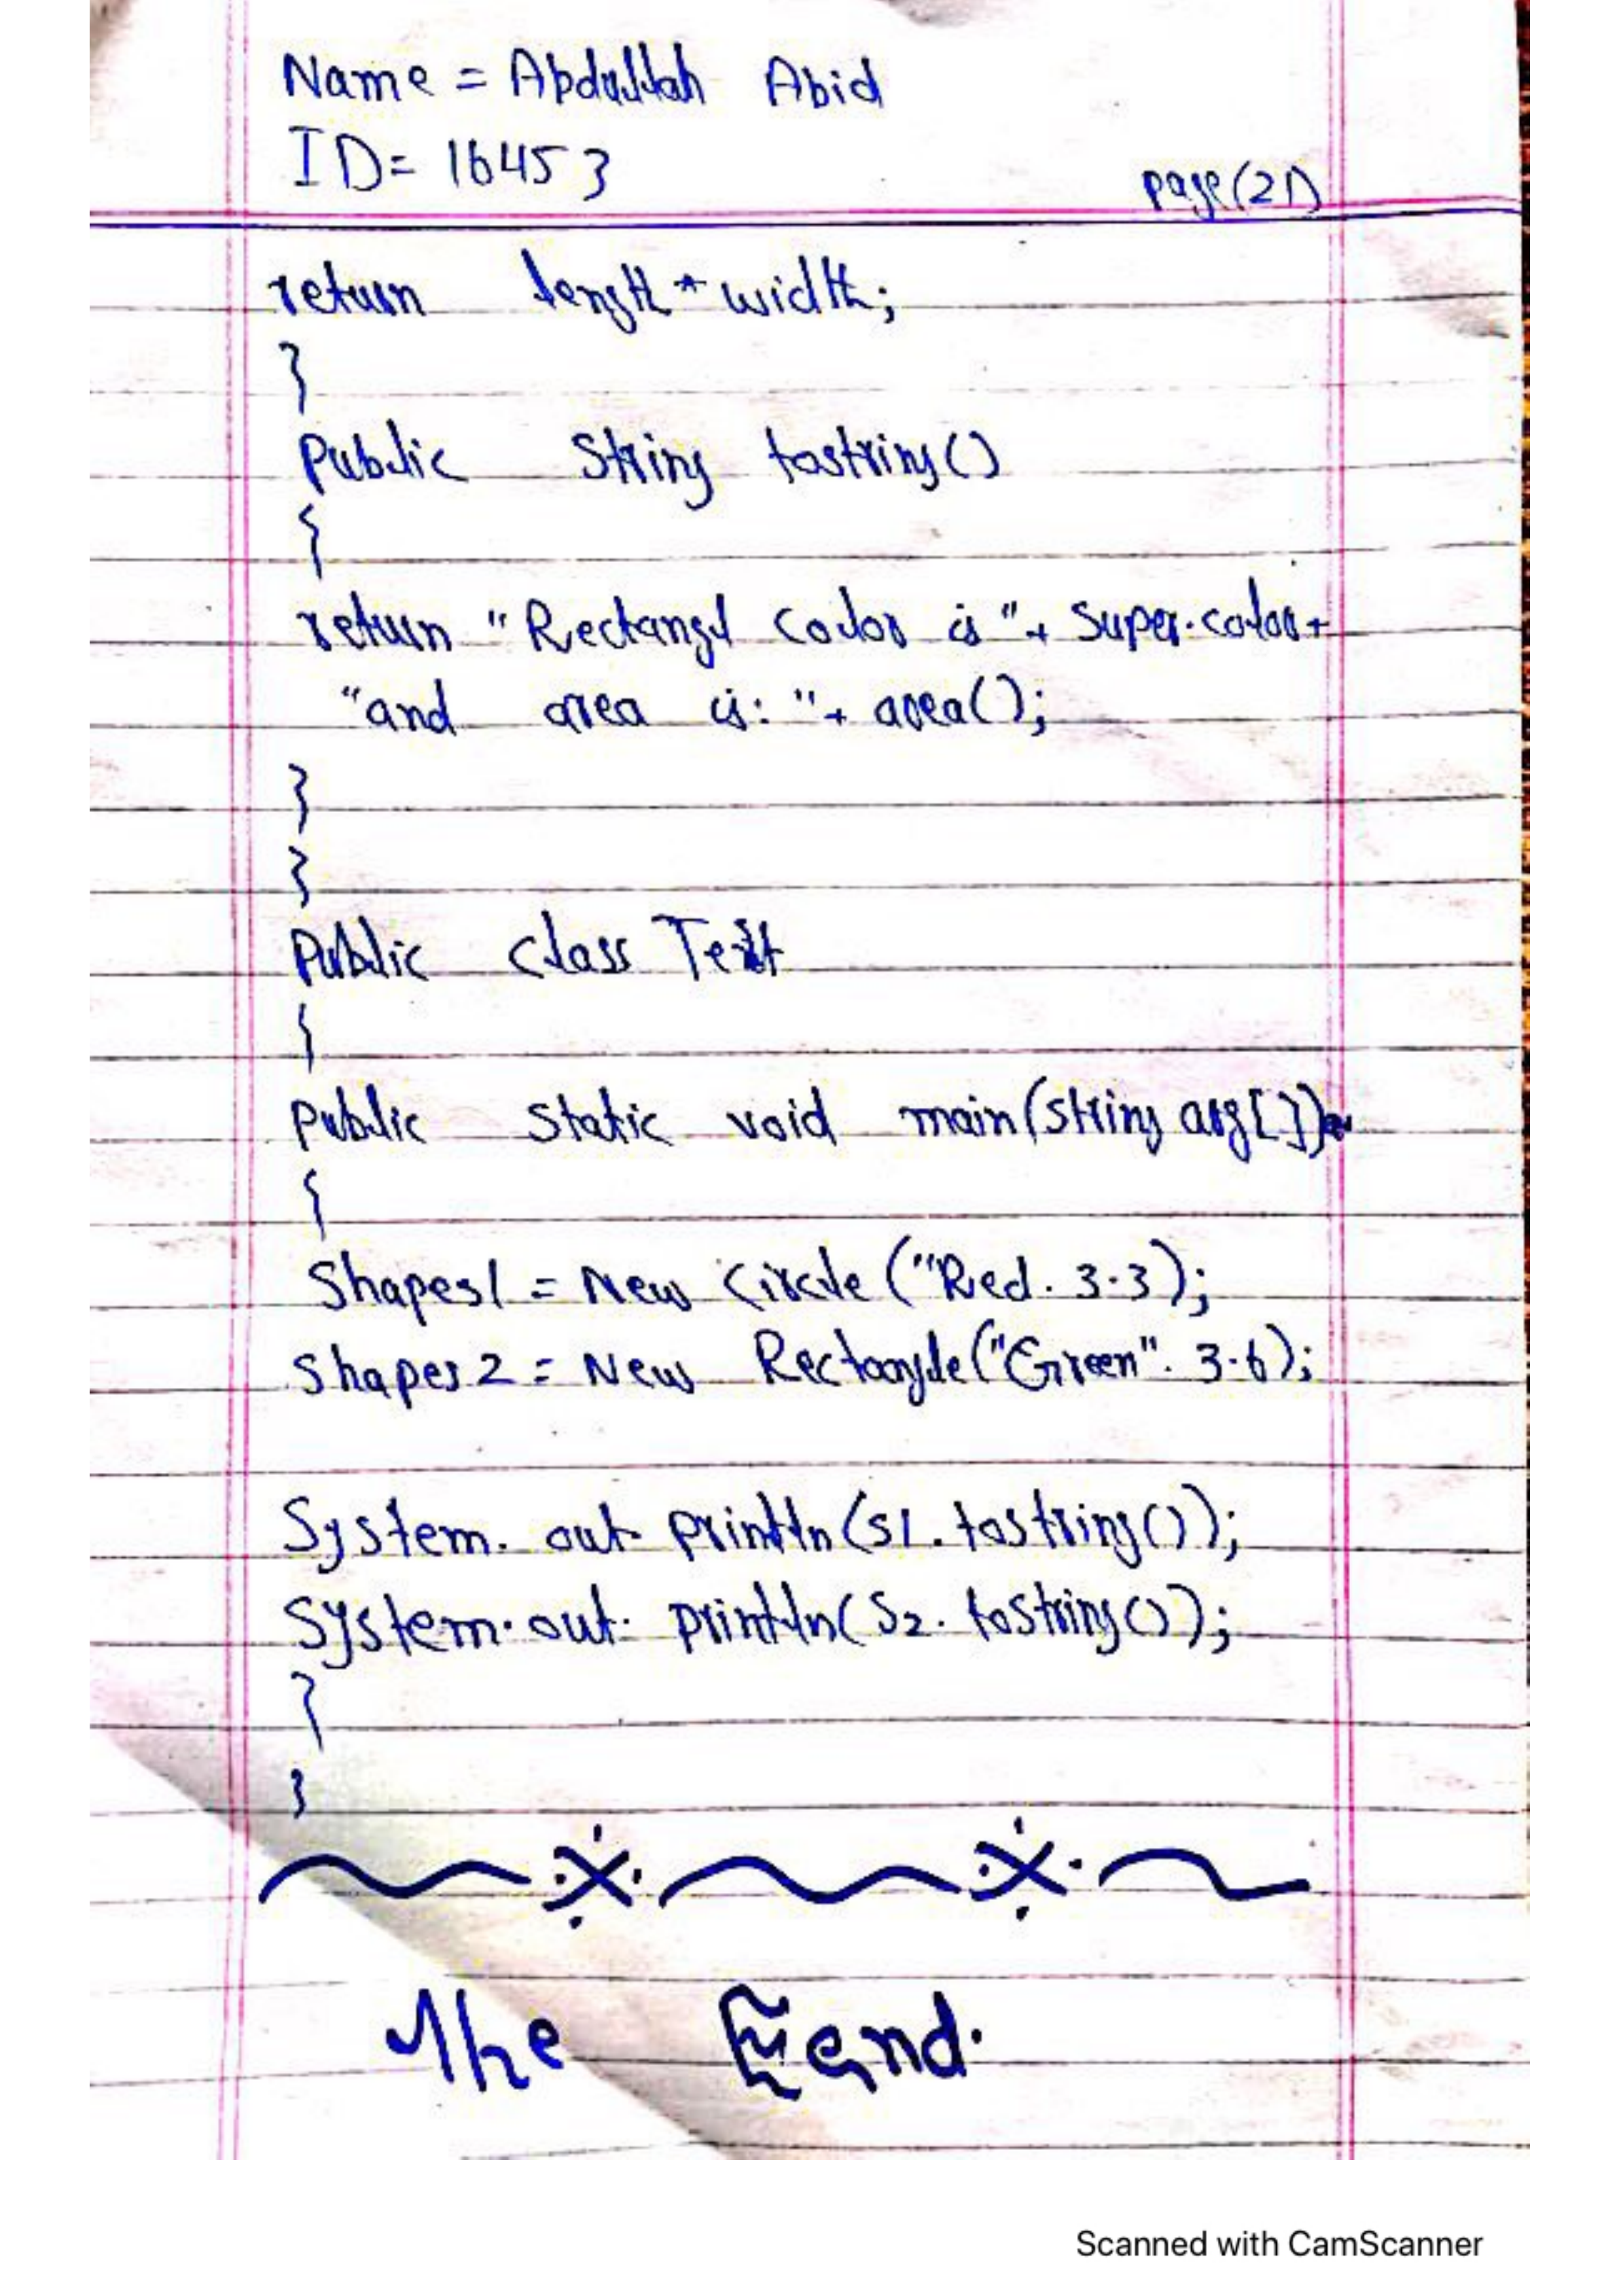 Name = Abdullah Abid
ID= 16453
page(21)
return length * width;
}
Public String tostring()
{
return "Rectangl Color is "+ Super.color+
"and area is: "+ area();
}
}
Public class Test
{
public static void main(string arg[])
{
Shapes1 = New Circle ("Red. 3.3);
Shapes2 = New Rectangle("Green". 3.6);
System. out. println(s1. tostring());
System.out. println(S2. toString());
}
}
The End.
Scanned with CamScanner